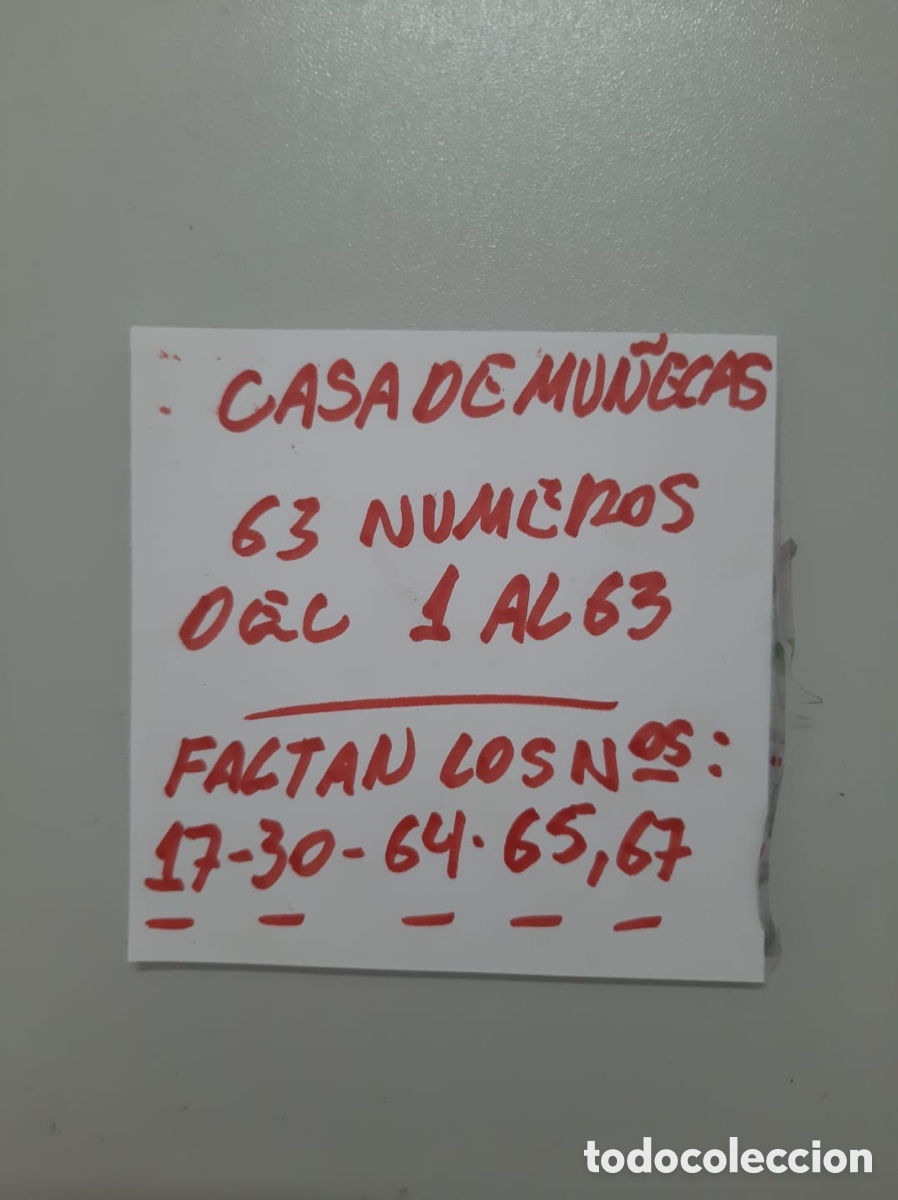 CASA DE MUÑECAS
63 NUMEROS
DEL 1 AL 63
FALTAN LOS Nos:
17-30-64.65,67
todocoleccion